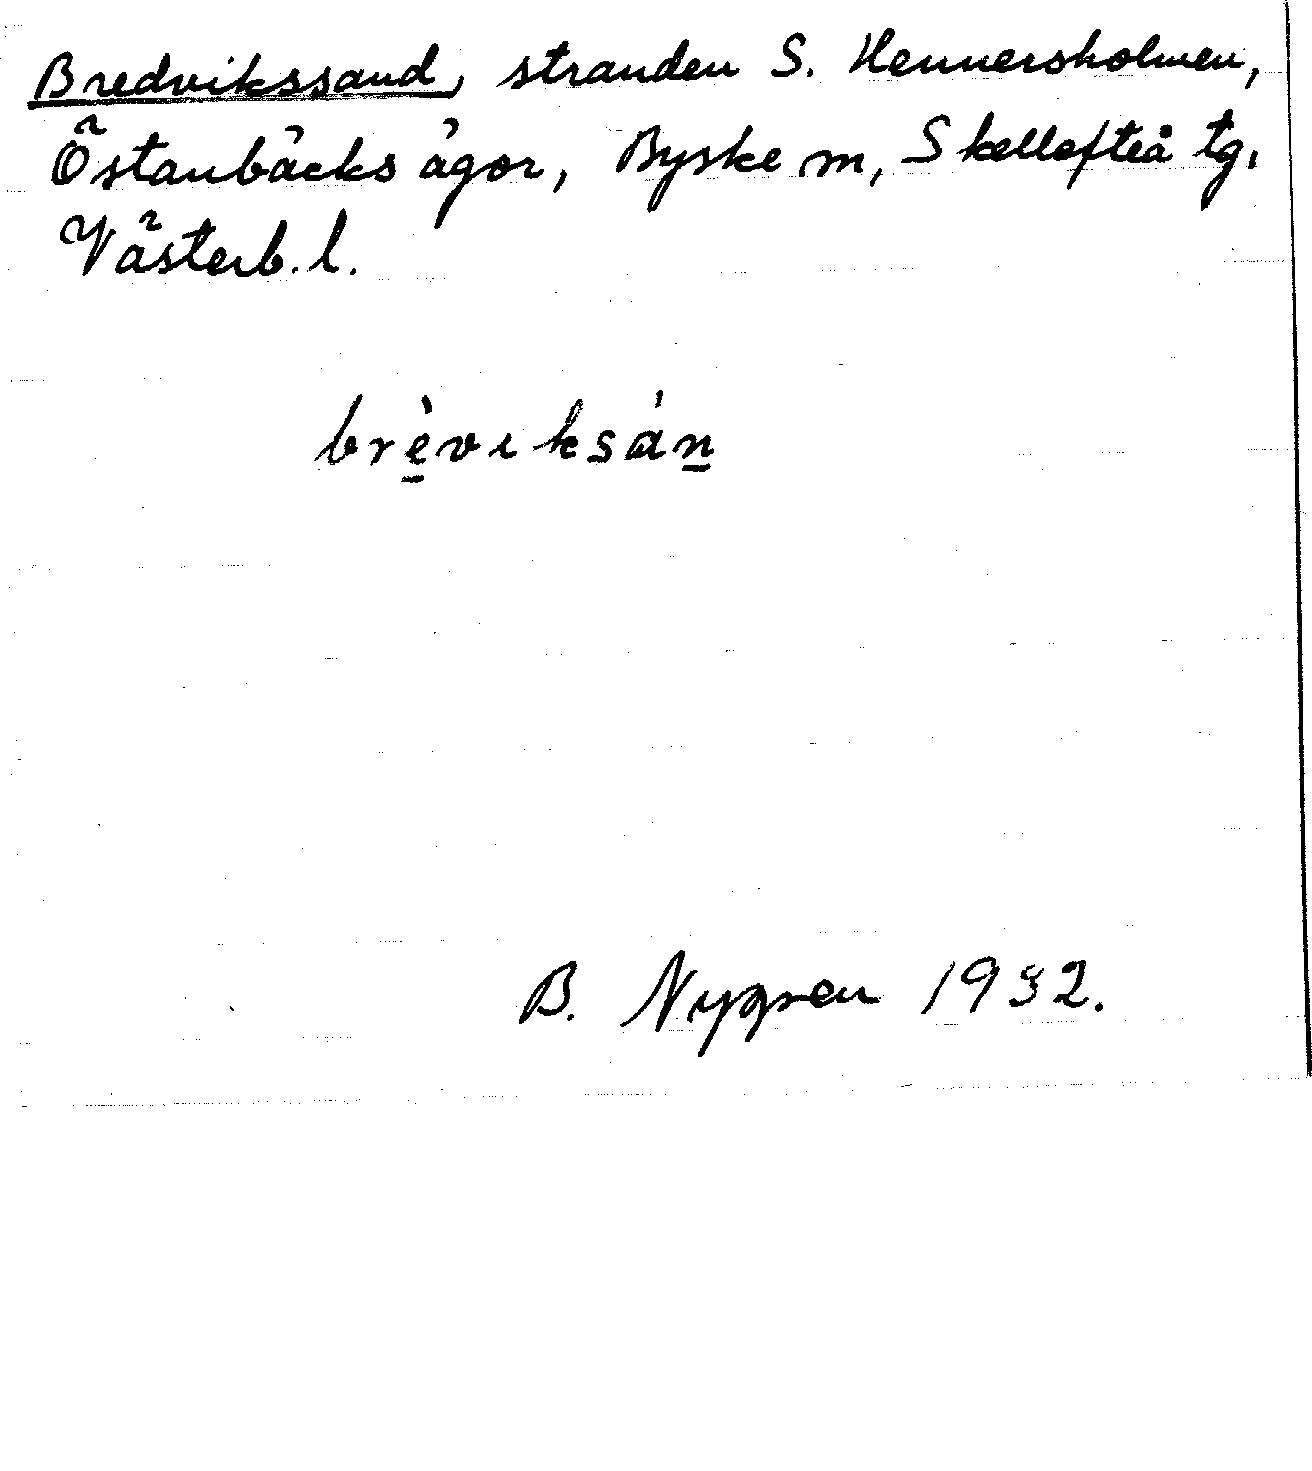 Bredvikssand, stranden S. Hennersholmen,
Östanbäcks ägor, Byske sn, Skellefteå tg,
Västerb. l.
brèviksán
B. Nygren 1932.